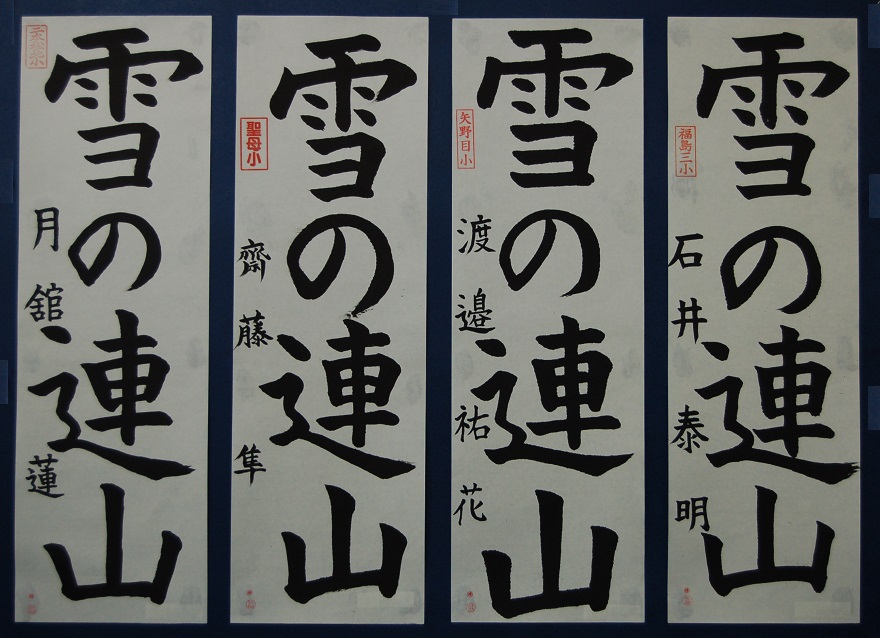 福島三小
雪の連山
石井泰明
矢野目小
雪の連山
渡邉祐花
聖母小
雪の連山
齋藤隼
雪の連山
月舘蓮